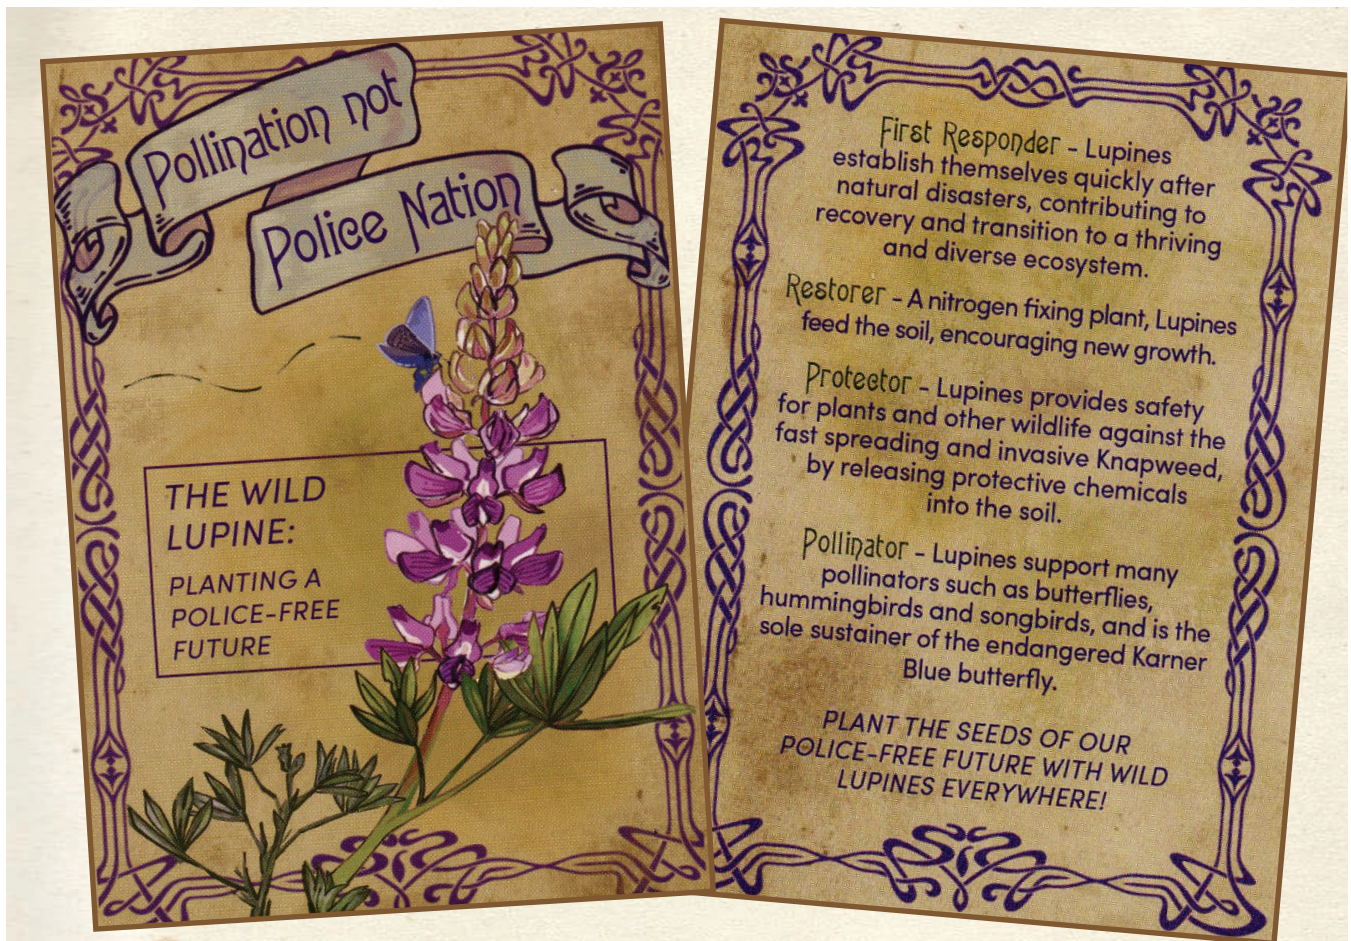 Pollination not
Police Nation
THE WILD
LUPINE:
PLANTING A
POLICE-FREE
FUTURE
First Responder - Lupines
establish themselves quickly after
natural disasters, contributing to
recovery and transition to a thriving
and diverse ecosystem.
Restorer - A nitrogen fixing plant, Lupines
feed the soil, encouraging new growth.
Protector - Lupines provides safety
for plants and other wildlife against the
fast spreading and invasive Knapweed,
by releasing protective chemicals
into the soil.
Pollinator - Lupines support many
pollinators such as butterflies,
hummingbirds and songbirds, and is the
sole sustainer of the endangered Karner
Blue butterfly.
PLANT THE SEEDS OF OUR
POLICE-FREE FUTURE WITH WILD
LUPINES EVERYWHERE!